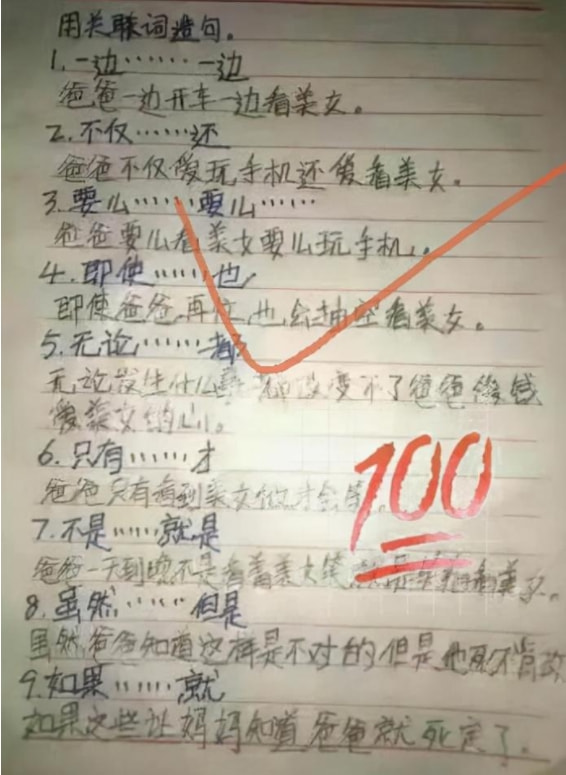 用关联词造句。
1.一边……一边
爸爸一边开车一边看美女。
2.不仅……还
爸爸不仅爱玩手机还爱看美女。
3.要么……要么……
爸爸要么看美女要么玩手机。
4.即使……也
即使爸爸再忙,也会抽空看美女。
5.无论……都
无论发生什么事都改变不了爸爸
爱美女的心。
6.只有……才
爸爸只有看到美女他才会笑。
100
7.不是……就是
爸爸一天到晚不是看着美女笑,就是看美女。
8.虽然……但是
虽然爸爸知道这样是不对的但是他死不肯改
9.如果……就
如果这些让妈妈知道爸爸就死定了。